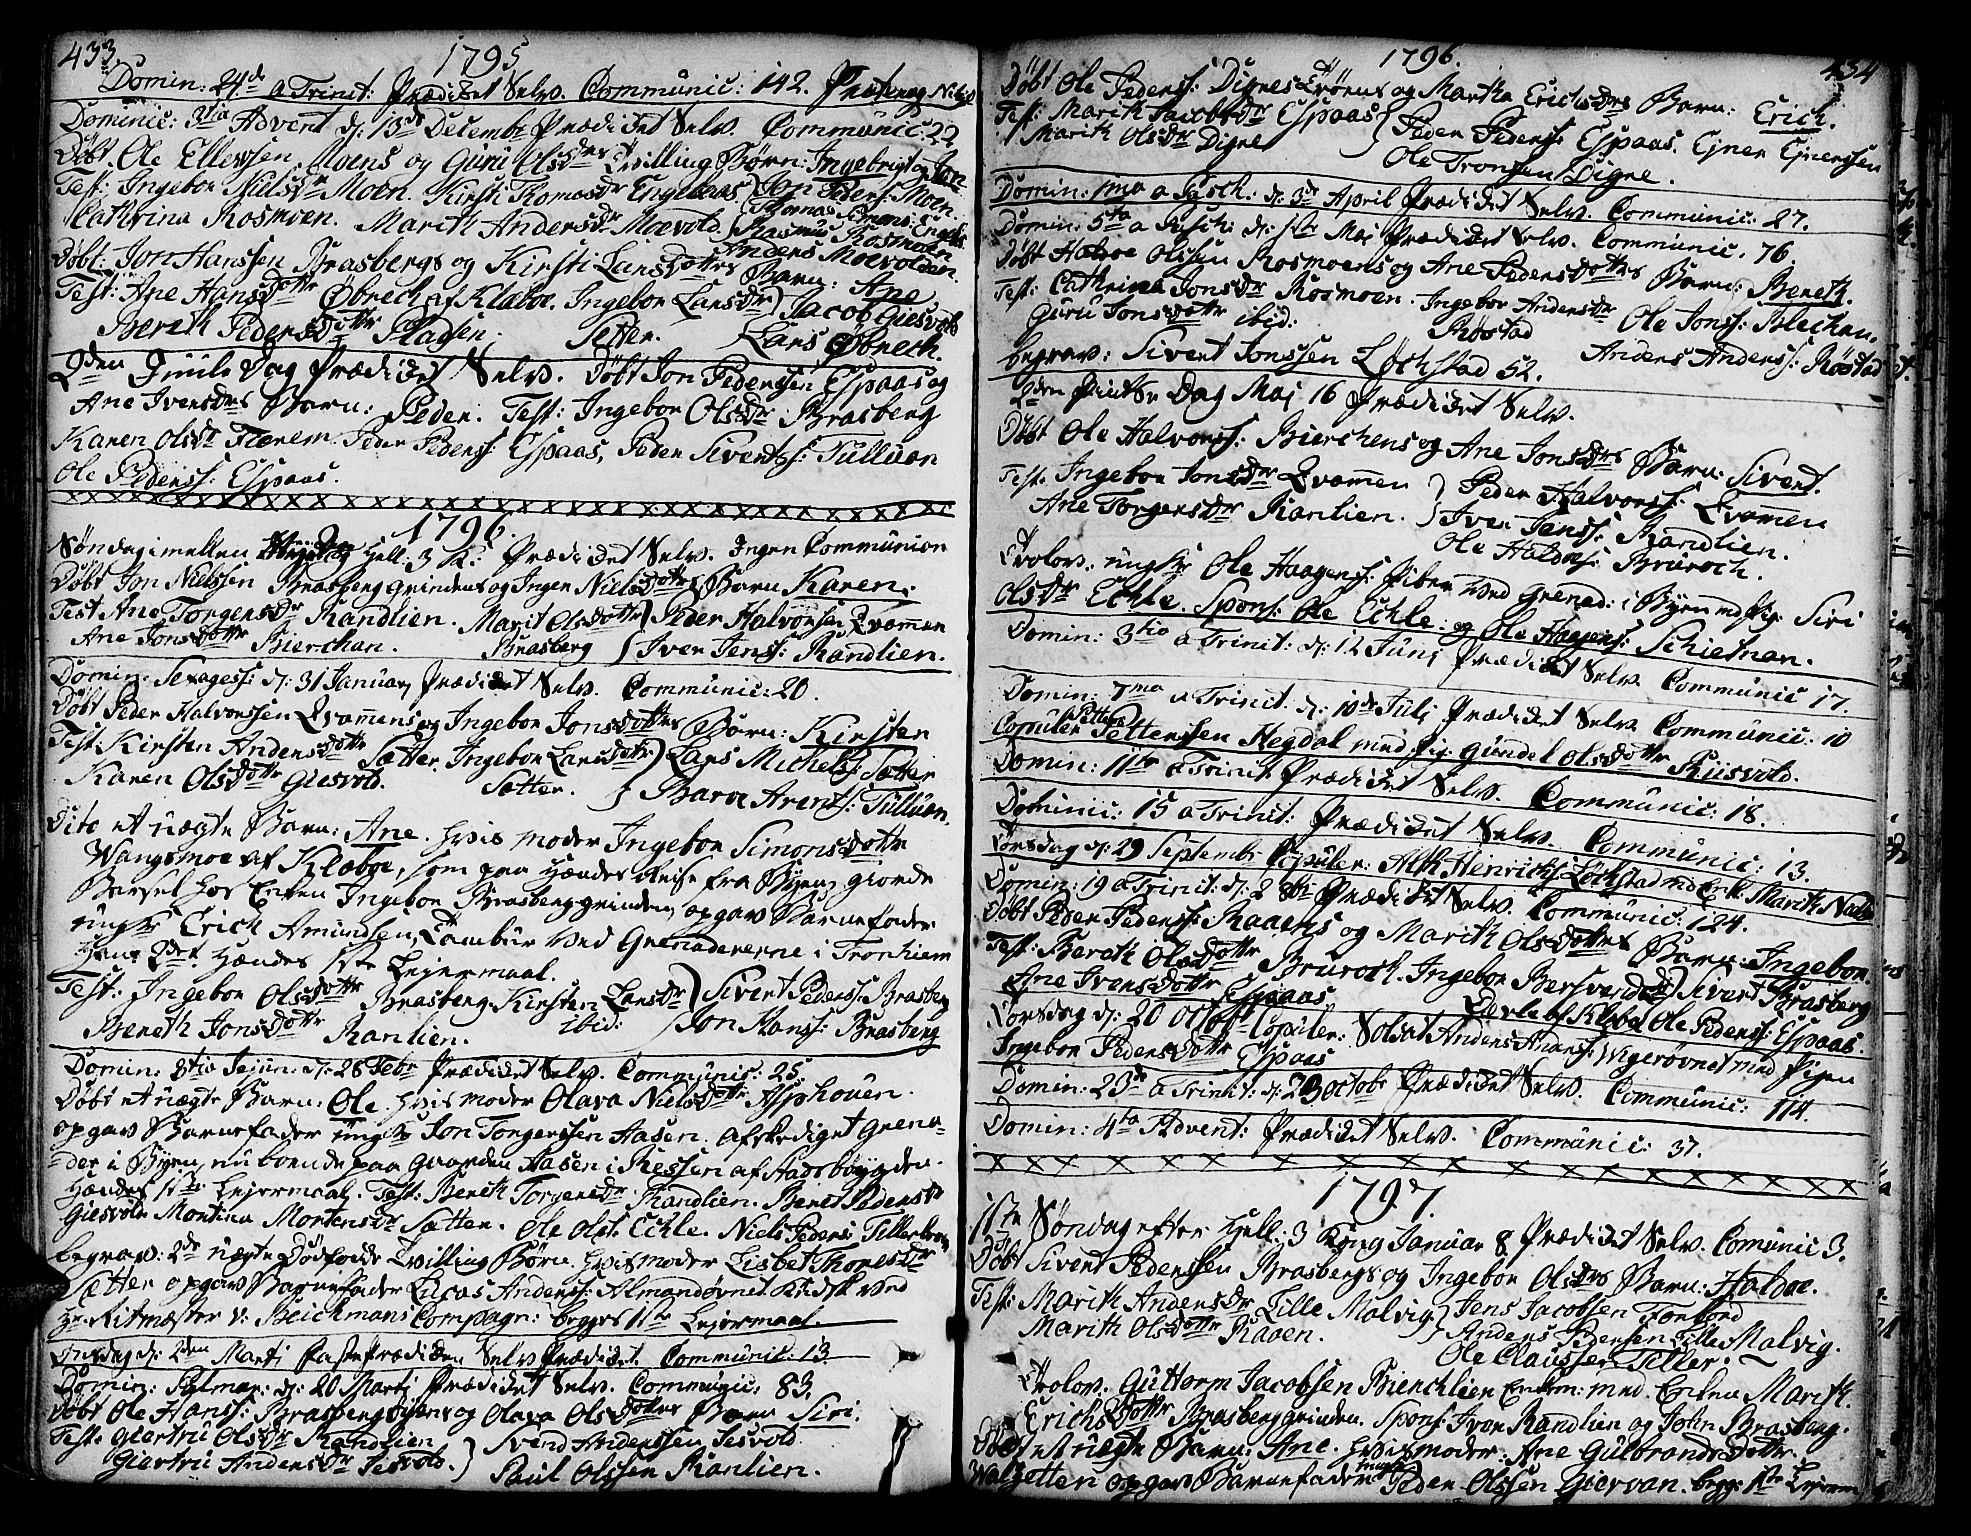 433.
1795
Domin: 24de a Trinit: Prædiket Selv. Communic: 142. Præste og
Dominic: 3tia Advent d: 13de Decembr Prædiket Selv. Communic: 22
Døbt Ole Ellevsen Moens og Guru Olsdrs Tvilling Børn: Ingebrigt og Jon
Test: Ingebor Nielsdr Moen. Kirsti Tomasdr Engelsaas Jon Peders: Moen.
Cathrina Rosmoen. Marith Andersdr Moevold. Rasmus Rosmoen
Anders Moevolden.
Døbt: Jon Hanssen Brasbergs og Kirsti Larsdotters Barn: Ane
Test: Ane Hansdotter Øbrech af Klæboe. Ingebor Larsdr Jacob Giesvold
Berith Pedersdotter Plasen. Setter. Lars Øbrech.
2den Juule Dag Prædiket Selv. Døbt Jon Pederssen Espaas og
Ane Iversdrs Barn: Peder. Test: Ingebor Olsdr Brasberg
Karen Olsdr Flænem. Peder Peders: Espaas, Peder Siverts: Tulluan
Ole Peders: Espaas.
1796.
Søndag imellem Nyt Aar og Hell: 3 K. Prædiket Selv. Ingen Communion
Døbt Jon Nielssen Brasberggrindens og Inger Nielsdotters Barn Karen.
Test Ane Torgersdr Randlien. Marit Olsdotter Peder Halvorssen Qvammen
Ane Jonsdotter Bierchan. Brasberg Iver Jens: Randlien.
Domin: Sexages: d: 31 Januar Prædiket Selv. Communic: 20.
Døbt Peder Halvorssen Qvammens og Ingebor Jonsdotters Barn: Kirsten
Test Kirsten Andersdotter Sætter. Ingebor Larsdotter Lars Michels: Sætter
Karen Olsdotter Giesvold. Sætter. Baroe Arents: Tulluan.
Dito et uægte Barn: Ane. hvis moder Ingebor Simonsdotter
Wangsmoe af Klæboe, som paa Hendes Reise fra Byen giorde
Barsel hos Enken Ingebor Brasberggrinden, opgav Barnefader
ungkr Erich Amundsen, Tambur ved Grenadererne i Tronhiem
Hans 2det Hendes 1ste Lejermaal.
Test: Ingebor Olsdotter Brasberg. Kirsten Larsdr Sivert Peders: Brasberg
Bereth Jonsdotter Ranlien. ibid: Jon Hans: Brasberg
Domin: 8tio Jejun: d: 28 Febr Prædiket Selv. Communic: 25.
Døbt et uægte Barn: Ole. hvis moder Olava Nielsdotter Asphouen.
opgav Barnefader ungkr Jon Torgerssen Aasen. Afskediget Grena-
der i Byen, nu boende paa Gaarden Aasen i Ressen af Aadsbøygden.
Hendes 1ste Lejermaal. Test: Bereth Torgersdr Randlien. Beret Pedersdr
Giesvold. Montina Mortensdr Sætter. Ole Ols: Eckle. Niels Peders: Tillerbroe
begrav: 2de uægte Dødfødde Tvilling Børn. Hvis moder Lisbet Thoresdr
Sætter opgav Barnefader Lucas Anders: Almandøvnet. Kudsk ved
Hr. Ritmester v: Beichmans Compagn: begges 1ste Lejermaal.
Onsdag d: 2den Marti Fasteprædiken Selv Prædiket. Communic: 13.
Domin: Palmar: d: 20 Marti Prædiket Selv. Communic: 83.
Døbt Ole Hans: Brasbergs og Olava Olsdotters Barn Siri.
Test. Giertru Olsdr Randlien Svend Anderssen Sesvold.
Giertru Andersdr Sesvold. Paul Olssen Ranlien.
1796.
434
Døbt Ole Peders: Digres og Martha Erichsdrs Barn: Erich.
Test: Marith Jacobsdr Espaas Peder Peders: Espaas. Ejner Ejnerssen
Marith Olsdr Digre Ole Tronsen Digre.
Domin: 1ma a Pasch. d: 3de April Prædiket Selv. Communic: 27.
Domin: 5ta a Pasch: d: 1ste Maj Prædiket Selv. Communic. 76.
Døbt Halvor Olssen Rosmoens og Ane Pedersdotters Barn: Bereth.
Test: Cathrina Jonsdr Rosmoen. Ingebor Andersdr Ole Jons: Blechan.
Guru Jonsdotter ibid: Røstad Anders Anders: Røstad
begrav: Sivert Jonssen Løchstad 52.
2den Pintse Dag Maj 16 Prædiket Selv.
Døbt Ole Halvors: Bierchens og Ane Jonsdrs Barn: Sivert.
Test. Ingebor Jonsdr Qvammen Peder Halvors: Qvammen
Ane Torgersdr Ranlien. Iver Jens: Randlien.
Ole Haldors: Bruroch.
Trolov. ungkr Ole Haagens: Piber ved Grenad: i Byen md Pig: Siri
Olsdr Eckle. Spons: Ole Eckle. og Ole Haagens: Schielnan.
Domin: 3tio a Trinit: d: 12 Junj Prædiket Selv. Communic 17.
Domin: 7ma a Trinit. d: 10de Julj Prædiket Selv. Communic: 10
Copuler Petter Petterssen Hegdal med Pig: Gundel Olsdotter Kusvold.
Domin: 11te a Trinit. Prædiket Selv. Communic: 18.
Dominic: 15 a Trinit: Prædiket Selv. Communic: 13.
Torsdag d: 29 Septembr Copuler: Alk Henrichs: Løchstad md Enk: Marith
Domin: 19 a Trinit: d: 2 8br Prædiket Selv. Communic. 124.
Døbt Peder Peders: Raaens og Marith Olsdotters Barn: Ingebor.
Test: Bereth Olsdotter Bruroch. Ingebor Bersvendd: Sivert Brasberg
Ane Iversdotter Espaas Ole Peders: Espaas.
Torsdag d: 20 octobr Copuler: Soldat Anders Anders: Wigerøvnet med Pigen
Ingebor Pedersdotter Espaas
Domin: 23de a Trinit: d: 29 octobr Prædiket Selv. Communic: 114.
Domin: 4ta Advent: Prædiket Selv. Communic: 37.
1797.
1ste Søndag efter Hell: 3 Kong Januar 8 Prædiket Selv. Comunic 3.
Døbt Sivert Pederssen Brasbergs og Ingebor Olsdrs Barn: Haldoe.
Test: Marith Andersdr Lille Malvig Jens Jacobsen Forbord
Marith Olsdotter Raaen. Anders Ibersen Lille Malvig.
Ole Claussen Tiller.
Trolov. Guttorm Jacobsen Bierchlien Enkem: med Enken Marith
Erichsdotter Brasberggrinden. Spons: Iver Randlien og John Brasberg.
Døbt et uægte Barn: Ane. hvis moder: Ane Gulbrandsdotter.
Walsetten opgav Barnefader ungkr Peder Olssen Giervan. begge 1ste Lejerm